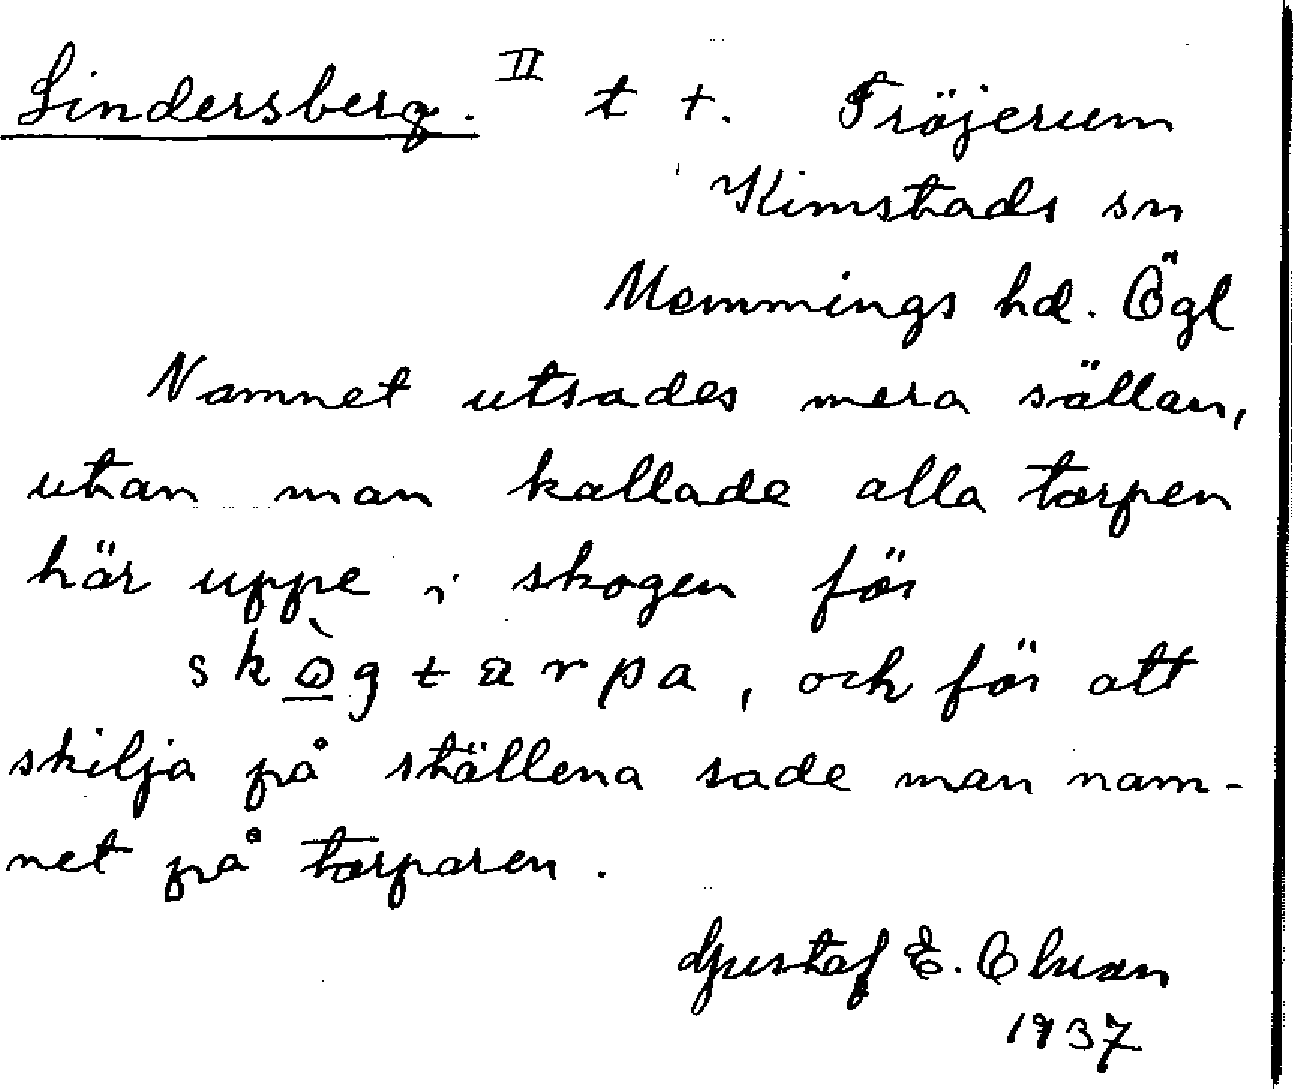 Lindersberg. II t +. Fröjerum
Kimstads sn
Memmings hd. Ögl
Namnet utsades mera sällan,
utan man kallade alla torpen
här uppe i skogen för
skògtarpa, och för att
skilja på ställena sade man nam-
net på torparen.
Gustaf E.
1937